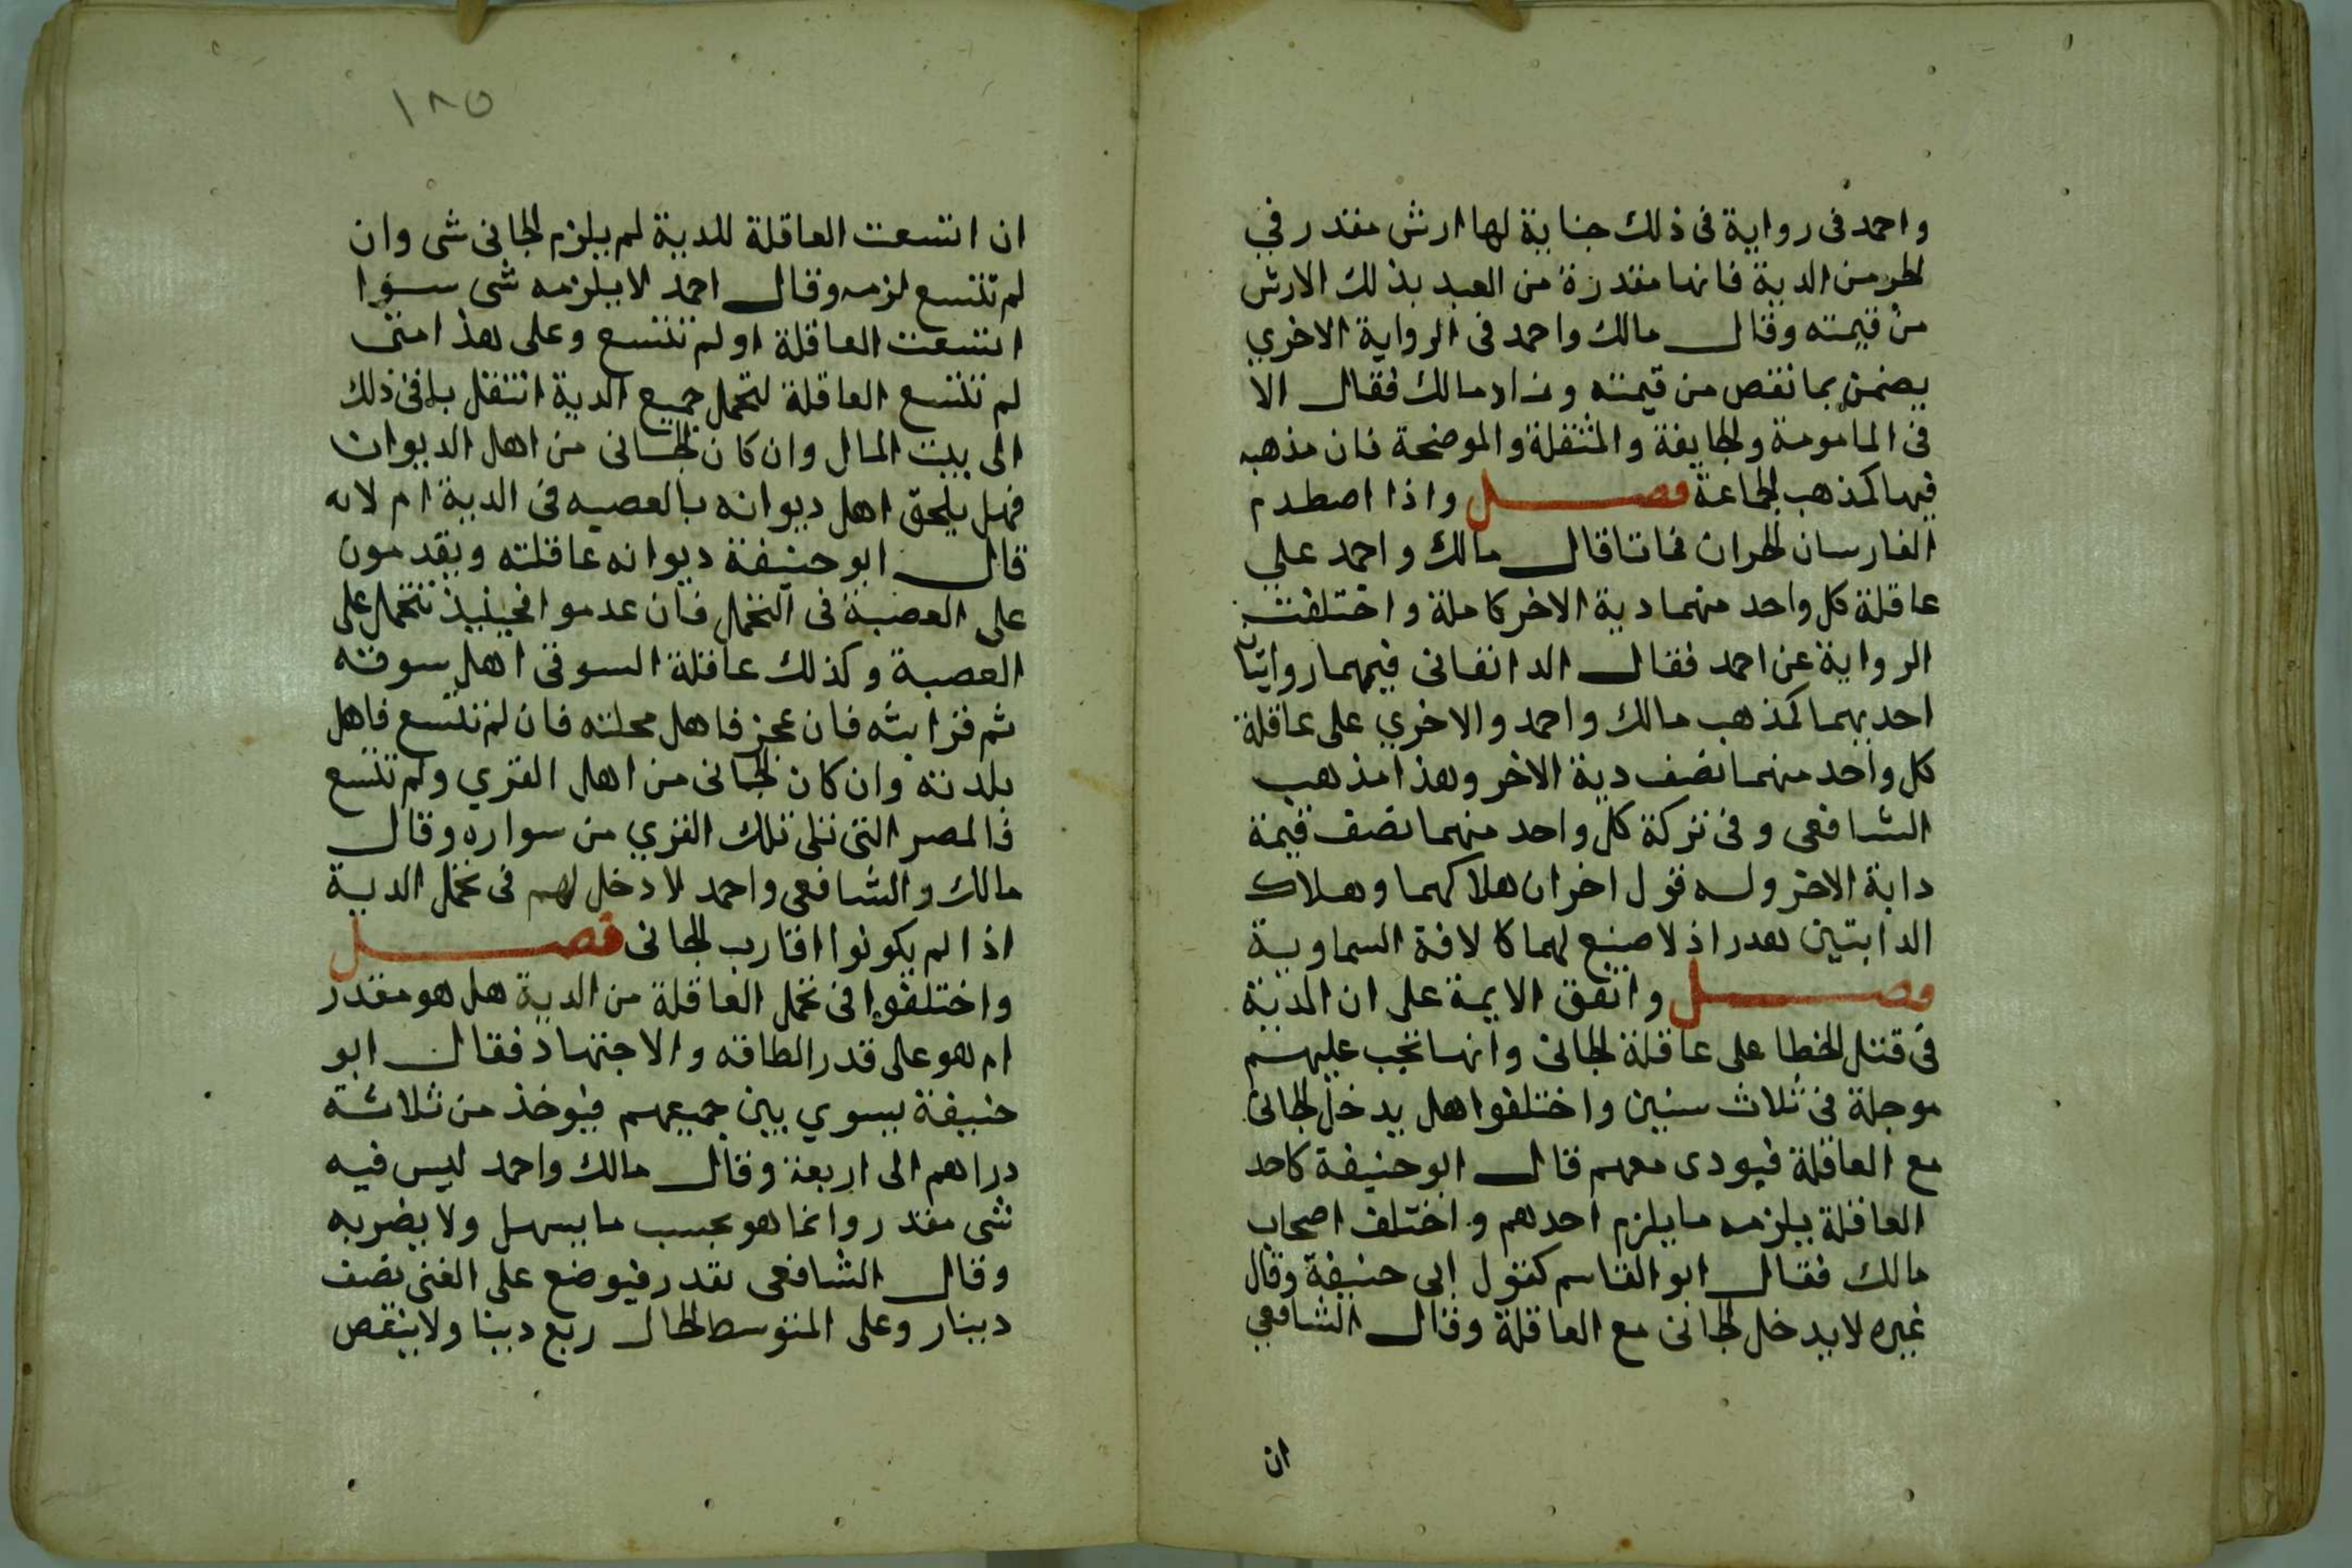 واحمد فى رواية فى ذلك جناية لها ارش مقدر في
الحر من الدية فانها مقدرة من العبد بذلك الارش
من قيمته وقال مالك واحمد فى الرواية الاخري
يضمن بما نقص من قيمته وزاد مالك فقال الا
فى المامومة والجايفة والمنقلة والموضحة فان مذهبه
فيها كمذهب الجماعة فصل واذا اصطدم
الفارسان الحران فماتا قال مالك واحمد علي
عاقلة كل واحد منهما دية الاخر كاملة واختلفت
الرواية عن احمد فقال الدانغانى فيهما روايتان
احديهما كمذهب مالك واحمد والاخري على عاقلة
كل واحد منهما نصف دية الاخر وهذا مذهب
الشافعى وفى تركة كل واحد منهما نصف قيمة
دابة الاخر وله قول اخر ان هلاكهما وهلاك
الدابتين هدر اذ لا صنع لهما كالافة السماوية
فصل واتفق الايمة على ان الدية
فى قتل الخطا على عاقلة الجانى وانها تجب عليهم
موجلة فى ثلاث سنين واختلفوا هل يدخل الجانى
مع العاقلة فيودى معهم قال ابو حنيفة كاحد
العاقلة يلزمه ما يلزم احدهم واختلف اصحاب
مالك فقال ابو القاسم كقول ابى حنيفة وقال
غيره لا يدخل الجانى مع العاقلة وقال الشافعي
ان
١٨٥
ان اتسعت العاقلة للدية لم يلزم الجانى شى وان
لم تتسع لزمه وقال احمد لا يلزمه شى سوا
اتسعت العاقلة او لم تتسع وعلى هذا متى
لم تتسع العاقلة لتحمل جميع الدية انتقل باقى ذلك
الى بيت المال وان كان الجانى من اهل الديوان
فهل يلحق اهل ديوانه بالعصبه فى الدية ام لا
قال ابو حنيفة ديوانه عاقلته ويقدمون
على العصبة فى التحمل فان عدموا فحينيذ تتحمل على
العصبة وكذلك عاقلة السوقى اهل سوقه
ثم قرابته فان عجز فاهل محلته فان لم تتسع فاهل
بلدته وان كان الجانى من اهل القري ولم تتسع
فالمصر التى تلى تلك القري من سواره وقال
مالك والشافعى واحمد لا دخل لهم فى تحمل الدية
اذا لم يكونوا اقارب الجانى فصل
واختلفوا فى تحمل العاقلة من الدية هل هو مقدر
ام هو على قدر الطاقه والاجتهاد فقال ابو
حنيفة يسوي بين جميعهم فيوخذ من ثلاثة
دراهم الى اربعة وقال مالك واحمد ليس فيه
شى مقدر وانما هو بحسب ما يسهل ولا يضربه
وقال الشافعى يقدر فيوضع على الغنى نصف
دينار وعلى المتوسط الحال ربع دينا ولا ينقص